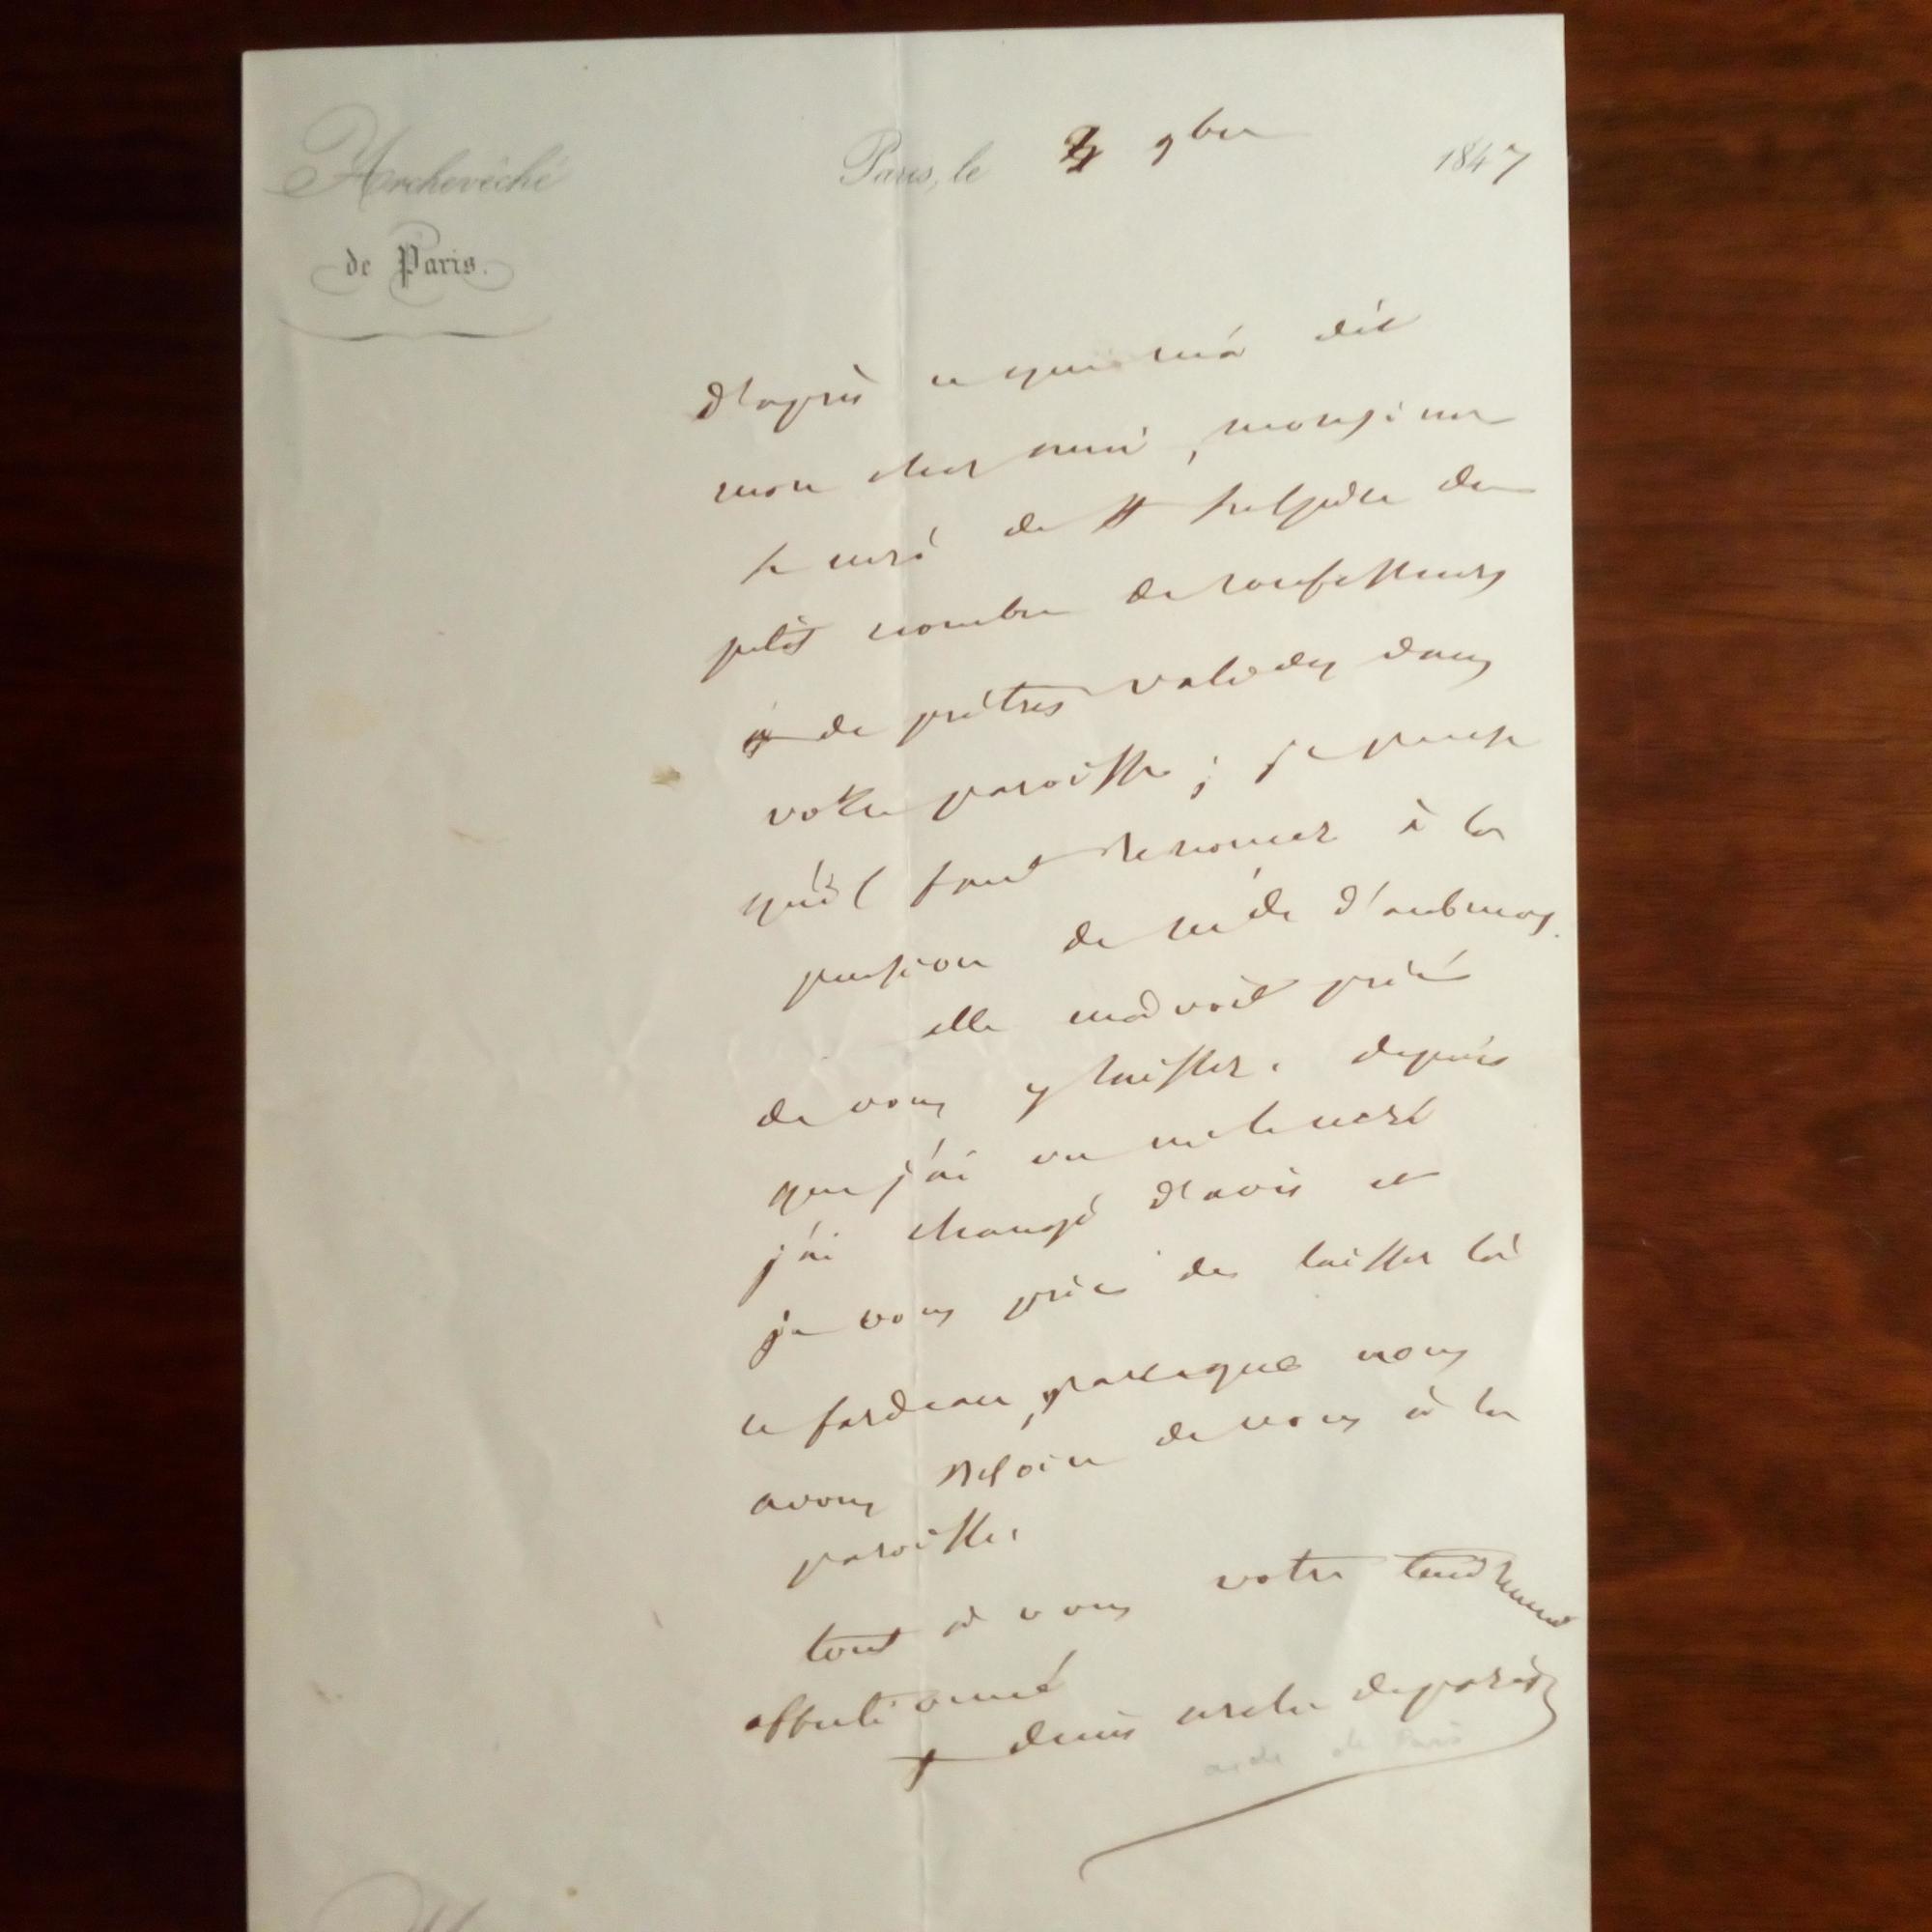 Archevêché
de Paris.
Paris, le 9bre 1847
d'après ce qui m'a dit
mon cher ami, monsieur
le curé de St Sulpice du
petit nombre de confesseurs
de prêtres valides dans
votre paroisse ; je pense
qu'il faut renoncer à la
pension de
elle m'avoit prié
de vous y laisser. depuis
que j'ai vu mr le curé
j'ai changé d'avis et
je vous prie de laisser là
ce fardeau, parceque nous
avons besoin de vous à la
paroisse.
tout à vous votre tendrement
affectionné
+ denis arche de paris
arch de Paris